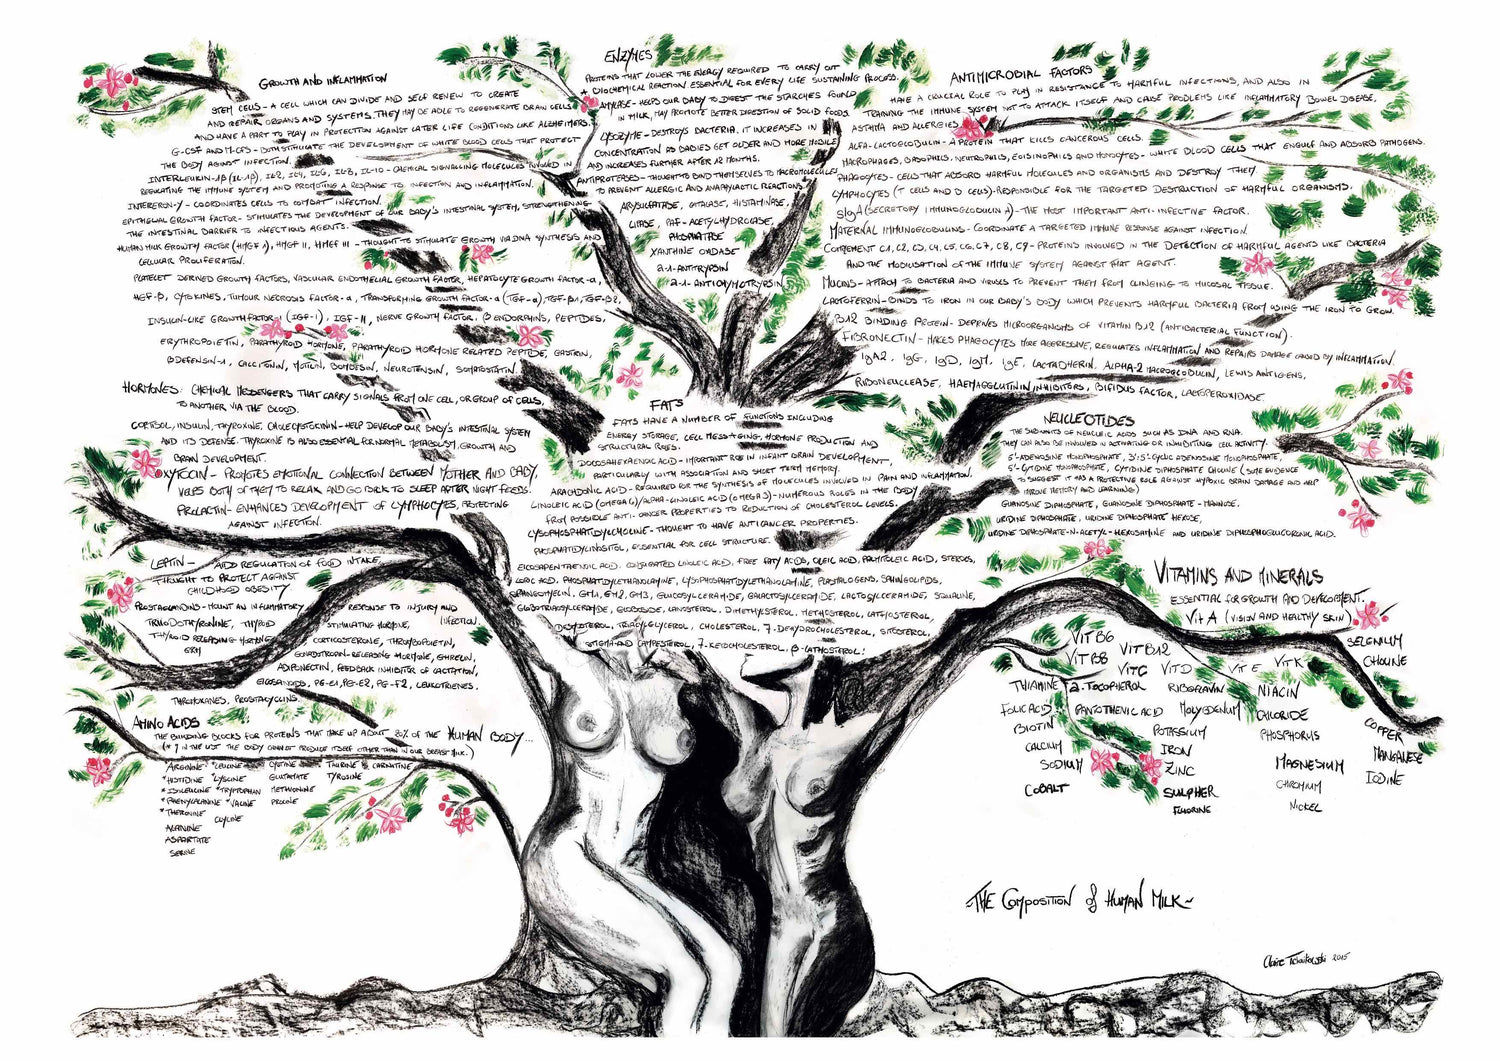 GROWTH AND INFLAMMATION
STEM CELLS - A CELL WHICH CAN DIVIDE AND SELF RENEW TO CREATE
AND REPAIR ORGANS AND SYSTEMS. THEY MAY BE ABLE TO REGENERATE BRAIN CELLS
AND HAVE A PART TO PLAY IN PROTECTION AGAINST LATER LIFE CONDITIONS LIKE ALZHEIMERS.
G-CSF AND M-CFS - BOTH STIMULATE THE DEVELOPMENT OF WHITE BLOOD CELLS THAT PROTECT
THE BODY AGAINST INFECTION.
INTERLEUKIN-1β (IL-1β), IL2, IL4, IL6, IL8, IL-10 - CHEMICAL SIGNALLING MOLECULES INVOLVED IN
REGULATING THE IMMUNE SYSTEM AND PROMOTING A RESPONSE TO INFECTION AND INFLAMMATION.
INTERERON-Y - COORDINATES CELLS TO COMBAT INFECTION.
EPITHELIAL GROWTH FACTOR - STIMULATES THE DEVELOPMENT OF OUR BABY'S INTESTINAL SYSTEM, STRENGTHENING
THE INTESTINAL BARRIER TO INFECTIOUS AGENTS.
HUMAN MILK GROWTH FACTOR (HMGF I), HMGF II, HMGF III - THOUGHT TO STIMULATE GROWTH VIA DNA SYNTHESIS AND
CELLULAR PROLIFERATION.
PLATELET DERIVED GROWTH FACTORS, VASCULAR ENDOTHELIAL GROWTH FACTOR, HEPATOCYTE GROWTH FACTOR-α,
HGF-β, CYTOKINES, TUMOUR NECROSIS FACTOR-α, TRANSFORMING GROWTH FACTOR-α (TGF-α), TGF-β1, TGF-β2,
INSULIN-LIKE GROWTH FACTOR-I (IGF-I), IGF-II, NERVE GROWTH FACTOR, β ENDORPHINS, PEPTIDES,
ERYTHROPOIETIN, PARATHYROID HORMONE, PARATHYROID HORMONE RELATED PEPTIDE, GASTRIN,
βDEFENSIN-1, CALCITONIN, MOTILIN, BOMBESIN, NEUROTENSIN, SOMATOSTATIN.
HORMONES: CHEMICAL MESSENGERS THAT CARRY SIGNALS FROM ONE CELL, OR GROUP OF CELLS,
TO ANOTHER VIA THE BLOOD.
CORTISOL, INSULIN, THYROXINE, CHOLECYSTOKININ - HELP DEVELOP OUR BABY'S INTESTINAL SYSTEM
AND ITS DEFENSE. THYROXINE IS ALSO ESSENTIAL FOR NORMAL METABOLISM, GROWTH AND
BRAIN DEVELOPMENT.
OXYTOCIN - PROMOTES EMOTIONAL CONNECTION BETWEEN MOTHER AND BABY,
HELPS BOTH OF THEM TO RELAX AND GO BACK TO SLEEP AFTER NIGHT FEEDS.
PROLACTIN - ENHANCES DEVELOPMENT OF LYMPHOCYTES, PROTECTING
AGAINST INFECTION.
LEPTIN - AIDS REGULATION OF FOOD INTAKE,
THOUGHT TO PROTECT AGAINST
CHILDHOOD OBESITY
PROSTAGLANDINS - MOUNT AN INFLAMMATORY RESPONSE TO INJURY AND INFECTION.
TRIIODOTHYRONINE, THYROID STIMULATING HORMONE,
THYROID RELEASING HORMONE
CORTICOSTERONE, THROMBOPOIETIN,
GONADOTROPIN-RELEASING HORMONE, GHRELIN,
ADIPONECTIN, FEEDBACK INHIBITOR OF LACTATION,
EICOSANOIDS, PG-E1, PG-E2, PG-F2, LEUKOTRIENES.
THROMBOXANES, PROSTACYCLINS.
AMINO ACIDS
THE BUILDING BLOCKS FOR PROTEINS THAT MAKE UP ABOUT 20% OF THE HUMAN BODY...
THE BODY CANNOT PRODUCE ITSELF OTHER THAN IN OUR BREAST MILK.)
*ARGININE *LEUCINE CYSTINE TAURINE & CARNATINE
*HISTIDINE *LYSCINE GLUTAMATE TYROSINE
*ISOLEUCINE *TRYPTOPHAN METHIONINE
*PHENYLALANINE *VALINE PROLINE
*THERONINE GLYCINE
ALANINE
ASPARTATE
SERINE
ENZYMES
PROTEINS THAT LOWER THE ENERGY REQUIRED TO CARRY OUT
A BIOCHEMICAL REACTION ESSENTIAL FOR EVERY LIFE SUSTAINING PROCESS.
AMYLASE - HELPS OUR BABY TO DIGEST THE STARCHES FOUND
IN MILK, MAY PROMOTE BETTER DIGESTION OF SOLID FOODS.
LYSOZYME - DESTROYS BACTERIA, IT INCREASES IN
CONCENTRATION AS BABIES GET OLDER AND MORE MOBILE
AND INCREASES FURTHER AFTER 12 MONTHS.
ANTIPROTEASES - THOUGHT TO BIND THEMSELVES TO MACROMOLECULES
TO PREVENT ALLERGIC AND ANAPHYLACTIC REACTIONS.
ARYLSULFATASE, CATALASE, HISTAMINASE,
LIPASE, PAF-ACETYLHYDROLASE,
PHOSPHATASE
XANTHINE OXIDASE
α-1-ANTITRYPSIN
α-1-ANTICHYMOTRYPSIN
FATS
FATS HAVE A NUMBER OF FUNCTIONS INCLUDING
ENERGY STORAGE, CELL MESSAGING, HORMONE PRODUCTION AND
STRUCTURAL ROLES.
DOCOSAHEXAENOIC ACID - IMPORTANT ROLE IN INFANT BRAIN DEVELOPMENT,
PARTICULARLY WITH ASSOCIATION AND SHORT TERM MEMORY.
ARACHIDONIC ACID - REQUIRED FOR THE SYNTHESIS OF MOLECULES INVOLVED IN PAIN AND INFLAMMATION.
LINOLEIC ACID (OMEGA 6)/ALPHA-LINOLEIC ACID (OMEGA 3) - NUMEROUS ROLES IN THE BODY
FROM POSSIBLE ANTI-CANCER PROPERTIES TO REDUCTION OF CHOLESTEROL LEVELS.
LYSOPHOSPHATIDYLCHOLINE - THOUGHT TO HAVE ANTICANCER PROPERTIES.
PHOSPHATIDYLINOSITOL, ESSENTIAL FOR CELL STRUCTURE.
EICOSAPENTAENOIC ACID, CONJUGATED LINOLEIC ACID, FREE FATTY ACIDS, OLEIC ACID, PALMITOLEIC ACID, STEROLS,
ACID, PHOSPHATIDYLETHANOLAMINE, LYSOPHOSPHATIDYLETHANOLAMINE, PLASMALOGENS, SPHINGOLIPIDS,
SPHINGOMYELIN, GM1, GM2, GM3, GLUCOSYLCERAMIDE, GALACTOSYLCERAMIDE, LACTOSYLCERAMIDE, SQUALINE,
GLOBOTRIAOSYLCERAMIDE, GLOBOSIDE, LANOSTEROL, DIMETHYLSTEROL, METHOSTEROL, LATHOSTEROL,
DESMOSTEROL, TRIACYLGLYCEROL, CHOLESTEROL, 7-DEHYDROCHOLESTEROL, SITOSTEROL,
STIGMA-AND CAMPESTEROL, 7-KETOCHOLESTEROL, β-LATHOSTEROL.
ANTIMICROBIAL FACTORS
HAVE A CRUCIAL ROLE TO PLAY IN RESISTANCE TO HARMFUL INFECTIONS, AND ALSO IN
TRAINING THE IMMUNE SYSTEM NOT TO ATTACK ITSELF AND CAUSE PROBLEMS LIKE INFLAMMATORY BOWEL DISEASE,
ASTHMA AND ALLERGIES.
ALFA-LACTOGLOBULIN - A PROTEIN THAT KILLS CANCEROUS CELLS.
MACROPHAGES, BASOPHILS, NEUTROPHILS, EOISINOPHILS AND MONOCYTES - WHITE BLOOD CELLS THAT ENGULF AND ABSORB PATHOGENS.
PHAGOCYTES - CELLS THAT ABSORB HARMFUL MOLECULES AND ORGANISMS AND DESTROY THEM.
LYMPHOCYTES (T CELLS AND B CELLS) - RESPONSIBLE FOR THE TARGETED DESTRUCTION OF HARMFUL ORGANISMS.
sIgA (SECRETORY IMMUNOGLOBULIN A) - THE MOST IMPORTANT ANTI-INFECTIVE FACTOR.
MATERNAL IMMUNOGLOBULINS - COORDINATE A TARGETED IMMUNE RESPONSE AGAINST INFECTION.
COMPLEMENT C1, C2, C3, C4, C5, C6, C7, C8, C9 - PROTEINS INVOLVED IN THE DETECTION OF HARMFUL AGENTS LIKE BACTERIA
AND THE MOBILISATION OF THE IMMUNE SYSTEM AGAINST THAT AGENT.
MUCINS - ATTACH TO BACTERIA AND VIRUSES TO PREVENT THEM FROM CLINGING TO MUCOSAL TISSUE.
LACTOFERRIN - BINDS TO IRON IN OUR BABY'S BODY WHICH PREVENTS HARMFUL BACTERIA FROM USING THE IRON TO GROW.
B12 BINDING PROTEIN - DEPRIVES MICROORGANISMS OF VITAMIN B12 (ANTIBACTERIAL FUNCTION).
FIBRONECTIN - MAKES PHAGOCYTES MORE AGGRESSIVE, REGULATES INFLAMMATION AND REPAIRS DAMAGE CAUSED BY INFLAMMATION.
IgA2, IgG, IgD, IgM, IgE, LACTADHERIN, ALPHA-2 MACROGLOBULIN, LEWIS ANTIGENS,
RIBONUCLEASE, HAEMAGGLUTININ INHIBITORS, BIFIDUS FACTOR, LACTOPEROXIDASE.
NEUCLEOTIDES
THE SUBUNITS OF NEUCLEIC ACIDS SUCH AS DNA AND RNA.
THEY CAN ALSO BE INVOLVED IN ACTIVATING OR INHIBITING CELL ACTIVITY.
5'-ADENOSINE MONOPHOSPHATE, 3':5'-CYCLIC ADENOSINE MONOPHOSPHATE,
5'-CYTIDINE MONOPHOSPHATE, CYTIDINE DIPHOSPHATE CHOLINE (SOME EVIDENCE
TO SUGGEST IT HAS A PROTECTIVE ROLE AGAINST HYPOXIC BRAIN DAMAGE AND HELP
IMPROVE MEMORY AND LEARNING)
GUANOSINE DIPHOSPHATE, GUANOSINE DIPHOSPHATE - MANNOSE,
URIDINE DIPHOSPHATE, URIDINE DIPHOSPHATE HEXOSE,
URIDINE DIPHOSPHATE-N-ACETYL-HEXOSAMINE AND URIDINE DIPHOSPHOGLUCORONIC ACID.
VITAMINS AND MINERALS
ESSENTIAL FOR GROWTH AND DEVELOPMENT.
Vit A (VISION AND HEALTHY SKIN)
VIT B6 VIT B12 SELENIUM
VIT B8 VIT C VIT D VIT E VIT K CHOLINE
THIAMINE α-TOCOPHEROL RIBOFLAVIN NIACIN
FOLIC ACID PANTOTHENIC ACID MOLYBDENUM CHLORIDE
BIOTIN POTASSIUM PHOSPHORUS COPPER
CALCIUM IRON MANGANESE
SODIUM ZINC MAGNESIUM IODINE
COBALT SULPHER CHROMIUM
FLUORINE NICKEL
~THE COMPOSITION of HUMAN MILK~
Claire 2015